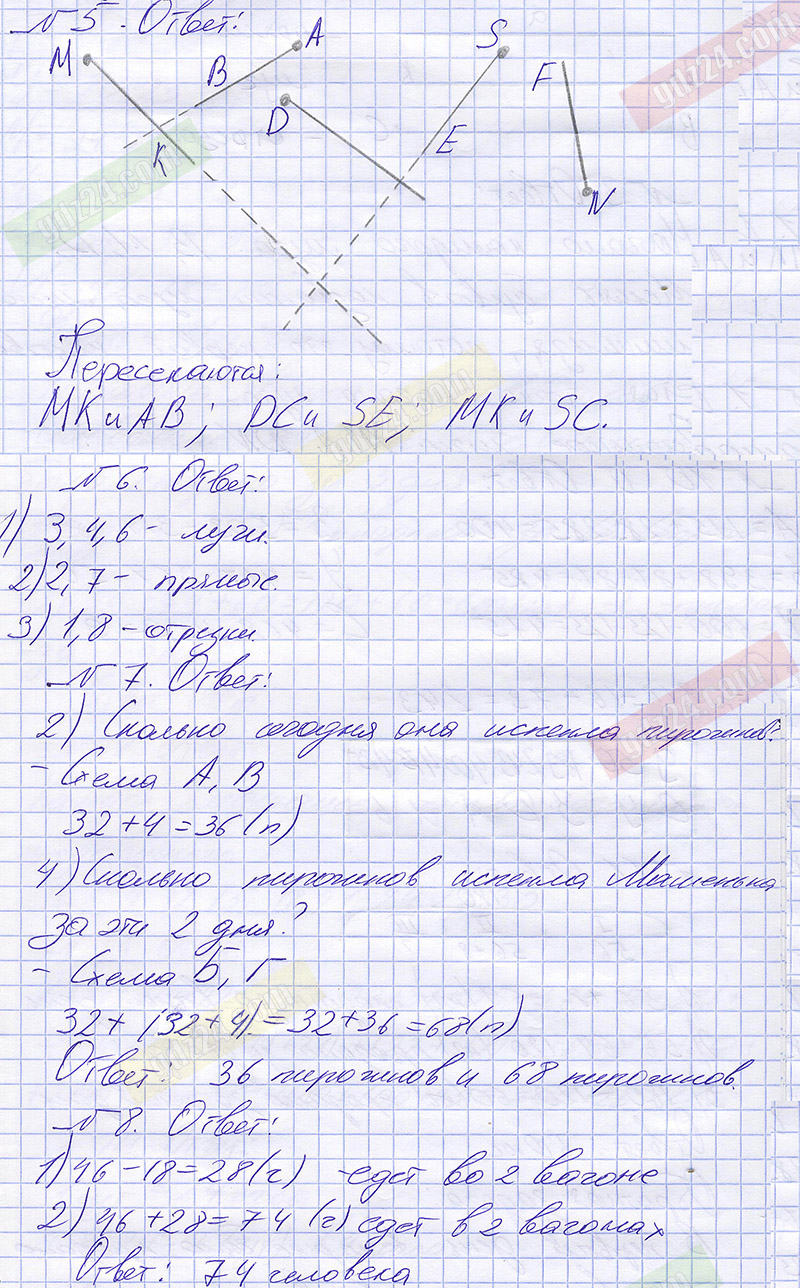 №5. Ответ:
M B A D K S E F N
Пересекаются:
МК и АВ; DC и SE; МК и SC.
№6. Ответ:
1) 3, 4, 6 - лучи.
2) 2, 7 - прямые.
3) 1, 8 - отрезки.
№7. Ответ:
2) Сколько сегодня она испекла пирожков?
- Схема А, В
32 + 4 = 36 (п)
4) Сколько пирожков испекла Машенька
за эти 2 дня?
- Схема Б, Г
32 + (32 + 4) = 32 + 36 = 68 (п)
Ответ: 36 пирожков и 68 пирожков.
№8. Ответ:
1) 46 - 18 = 28 (ч) - едет во 2 вагоне
2) 46 + 28 = 74 (ч) едет в 2 вагонах
Ответ: 74 человека
gdz24.com
gdz24.com
gdz24.com
gdz24.com
gdz24.com